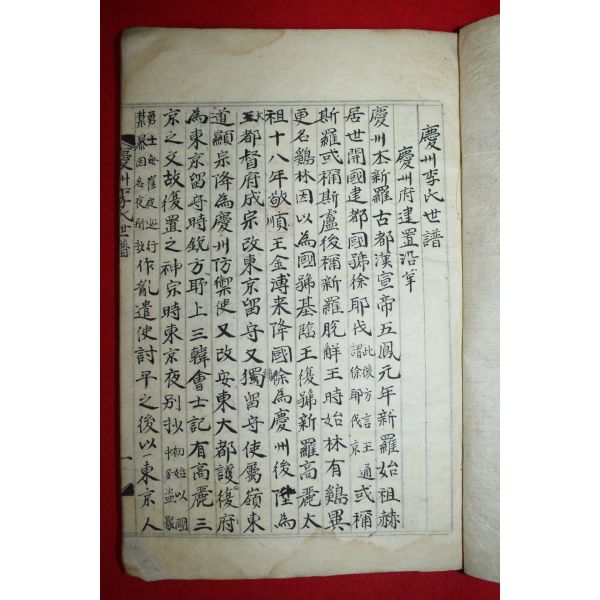 慶州李氏世譜
慶州府建置沿革
慶州本新羅古都漢宣帝五鳳元年新羅始祖赫
居世開國建都國號徐耶伐此後方言王通謂徐耶伐京或稱
斯羅或稱斯盧後稱新羅脫解王時始林有鷄異
更名鷄林因以為國號基臨王復號新羅高麗太
祖十八年敬順王金溥来降國除為慶州後陞為
大都督府成宗改東京留守又獨留守使屬嶺東
道顯宗降為慶州防禦使又改安東大都護復府
為東京留守時銳方耶上三韓會士記有高麗三
京之文故復置之神宗時東京夜別抄初始以國中多盜聚
勇士每夜巡行禁暴因名夜別抄作亂遣使討平之後以東京人
慶州李氏世譜
一